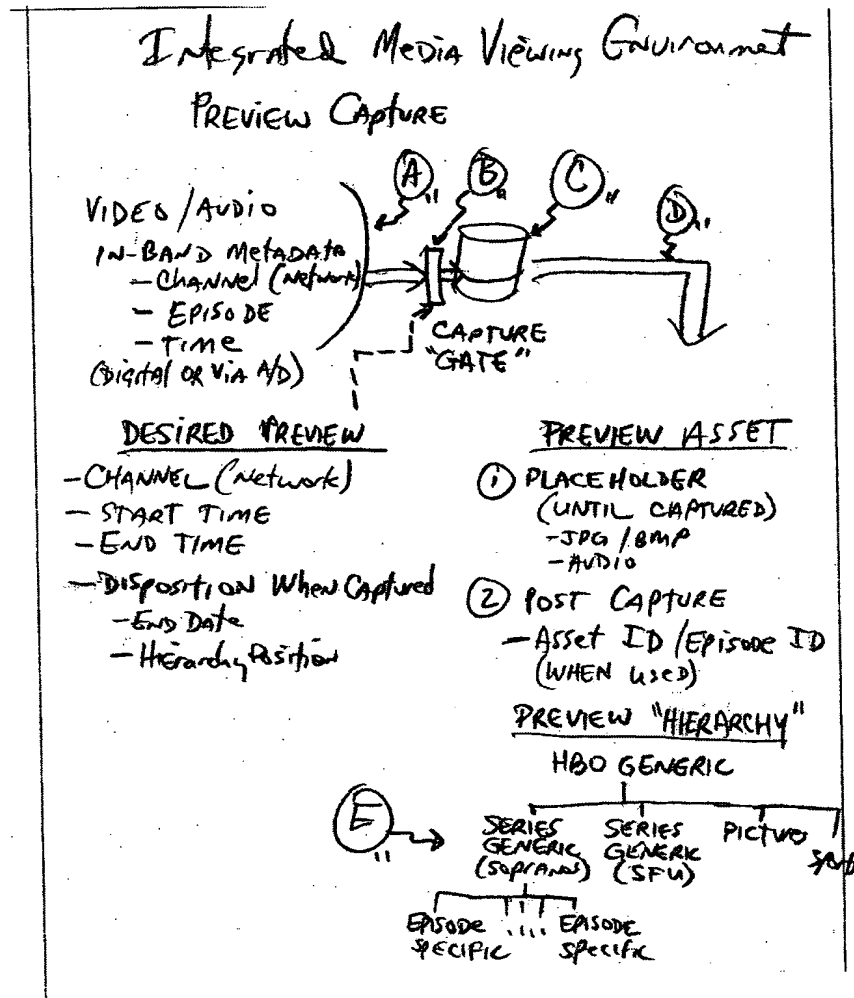 Integrated Media Viewing Environment
PREVIEW CAPTURE
A" B" C" D"
VIDEO/AUDIO
IN-BAND METADATA
- CHANNEL (Network)
- EPISODE
- TIME
(DIGITAL OR VIA A/D)
CAPTURE
"GATE"
DESIRED PREVIEW
- CHANNEL (Network)
- START TIME
- END TIME
- DISPOSITION When Captured
- END Date
- Hierarchy Position
PREVIEW ASSET
1 PLACEHOLDER
(UNTIL CAPTURED)
- JPG/BMP
- AUDIO
2 POST CAPTURE
- Asset ID/Episode ID
(WHEN USED)
PREVIEW "HIERARCHY"
HBO GENERIC
E"
SERIES GENERIC (SOPRANOS)
SERIES GENERIC (SFU)
PICTURES
EPISODE SPECIFIC .... EPISODE SPECIFIC